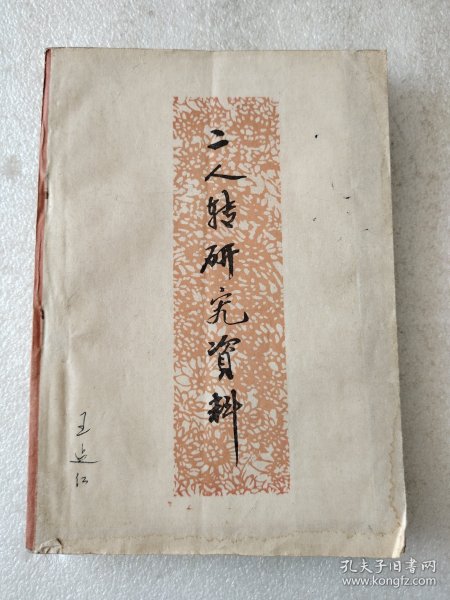 二人转研究資料
王占红
孔夫子旧书网
www.kongfz.com